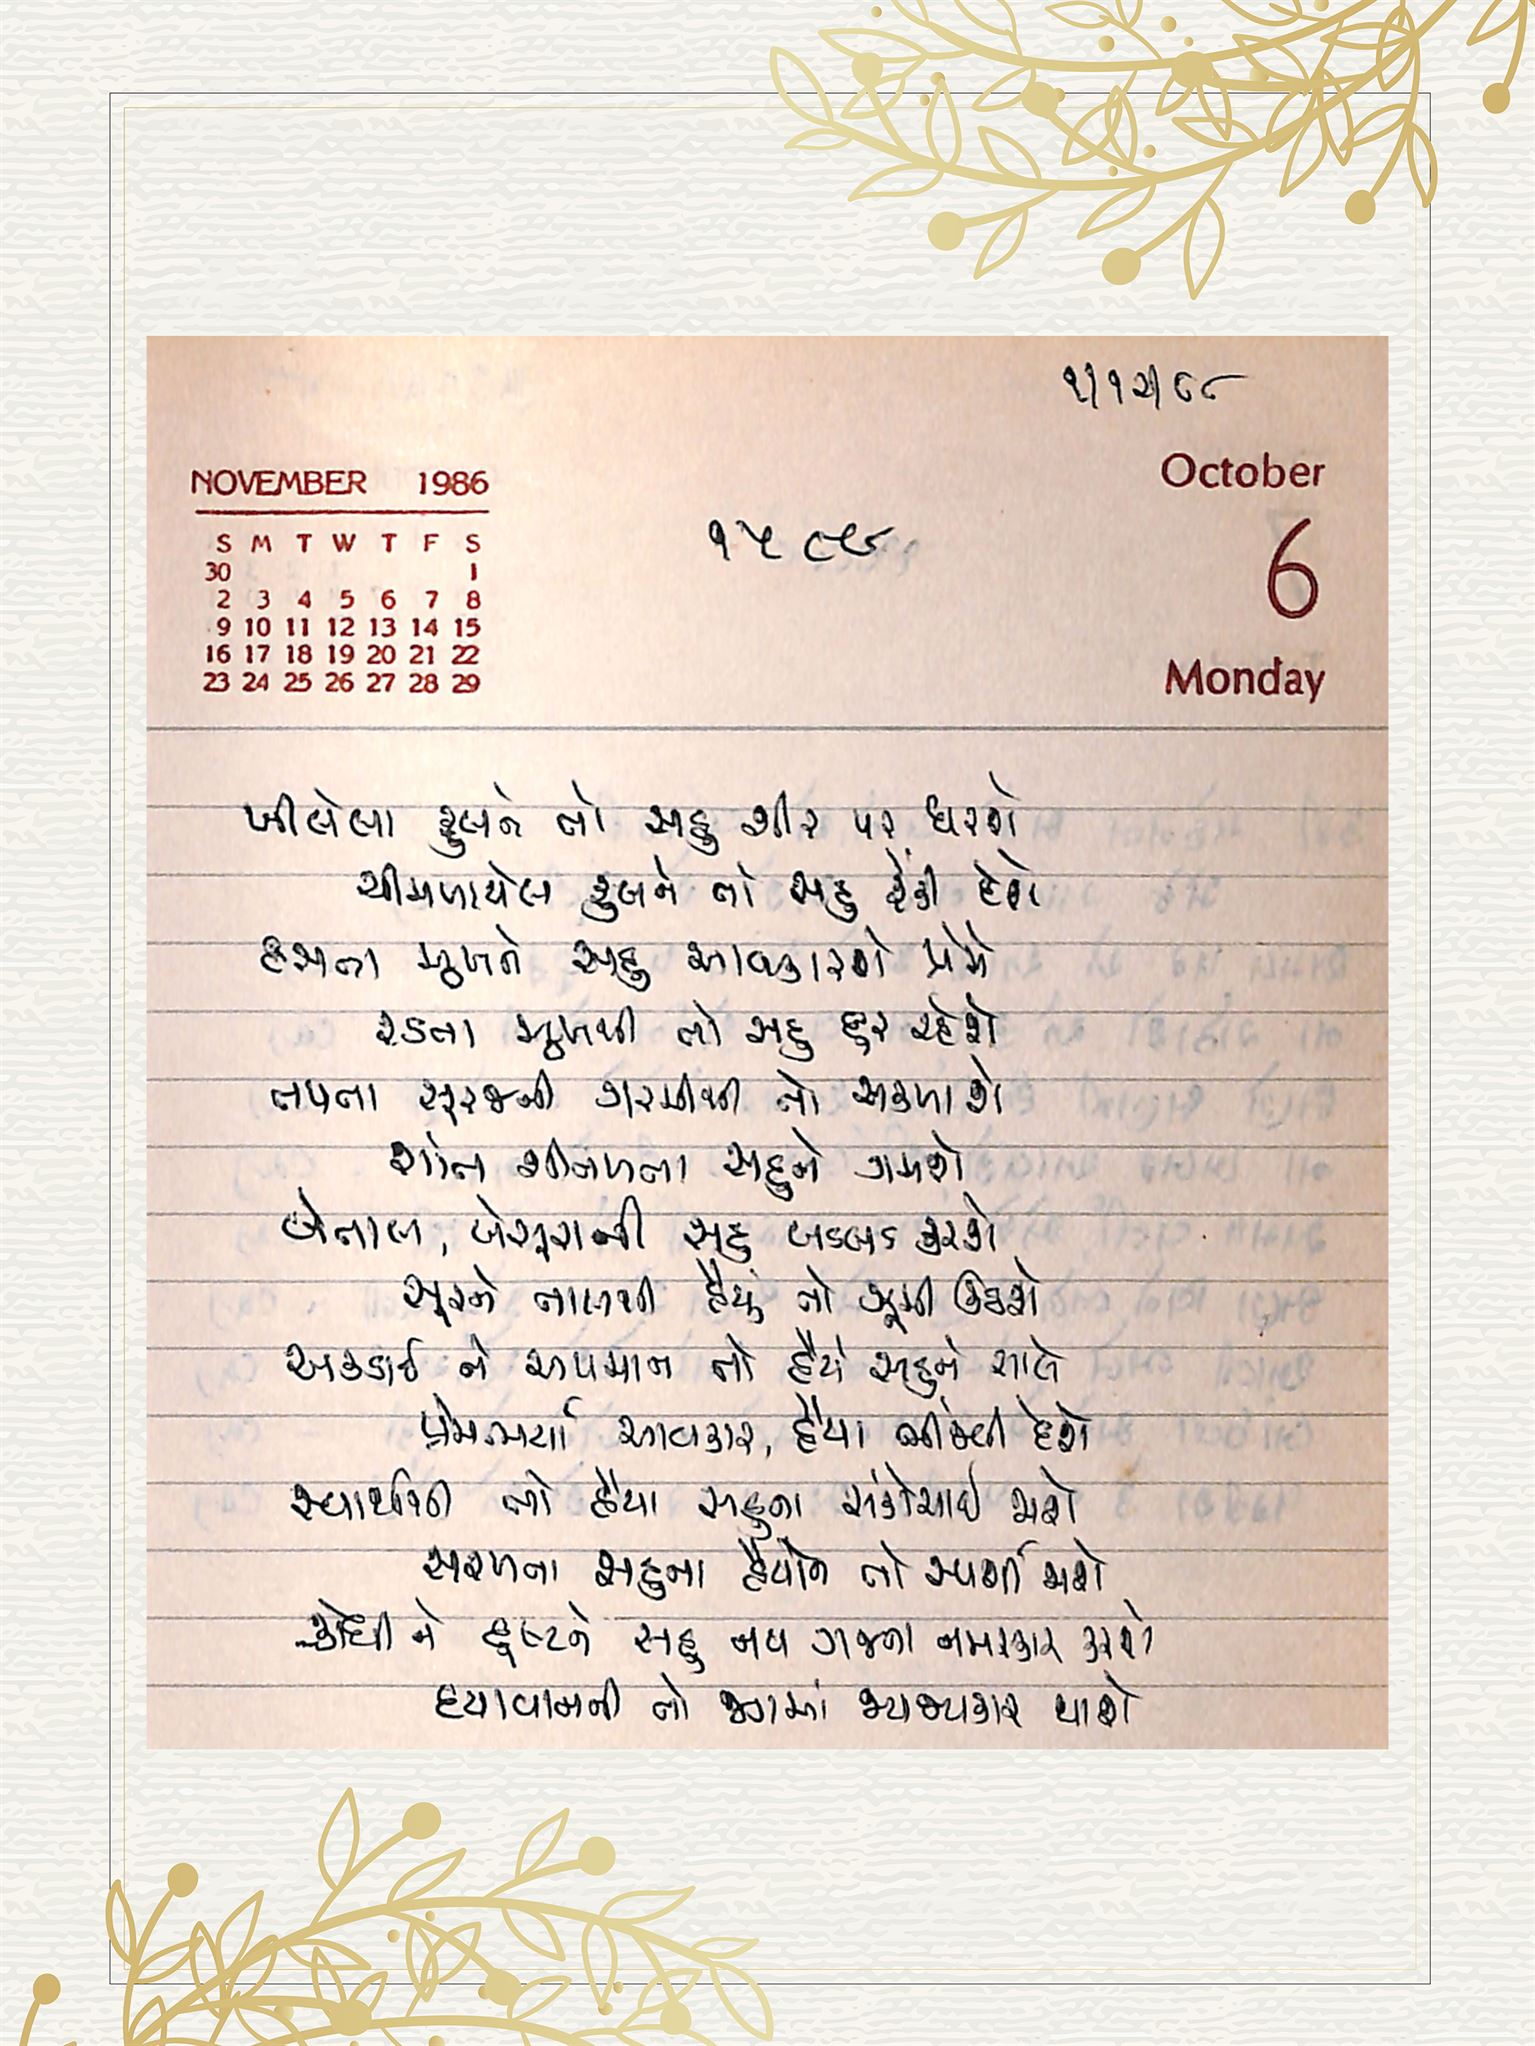 ૧/૧૨/૮૮
NOVEMBER 1986
October
S M T W T F S
30 1
2 3 4 5 6 7 8
9 10 11 12 13 14 15
16 17 18 19 20 21 22
23 24 25 26 27 28 29
6
Monday
ખીલેલા ફુલને તો સહુ શીર પર ધરશે
ચીમળાયેલ ફુલને તો સહુ ફેંકી દેશે
હસતા મુખને સહુ આવકારશે પ્રેમે
રડતા મુખથી તો સહુ દુર રહેશે
તપતા સૂરજની ગરમીથી તો અકળાશે
શાંત શીતળતા સહુને ગમશે
બેતાલ, બેસૂરાની સહુ બડબડ કરશે
સૂરને તાલથી હૈયું તો ઝૂમી ઊઠશે
અકડાઈ ને અપમાન તો હૈયે સહુને સાલે
પ્રેમભર્યા આવકાર, હૈયા ભીંજવી દેશે
સ્વાર્થથી તો હૈયા સહુના સંકોચાઈ જાશે
સરળતા સહુના હૈયાને તો સ્પર્શી જાશે
ક્રોધી ને દુષ્ટને સહુ નવ ગજના નમસ્કાર કરશે
દયાવાનની તો જગમાં જયજયકાર થાશે